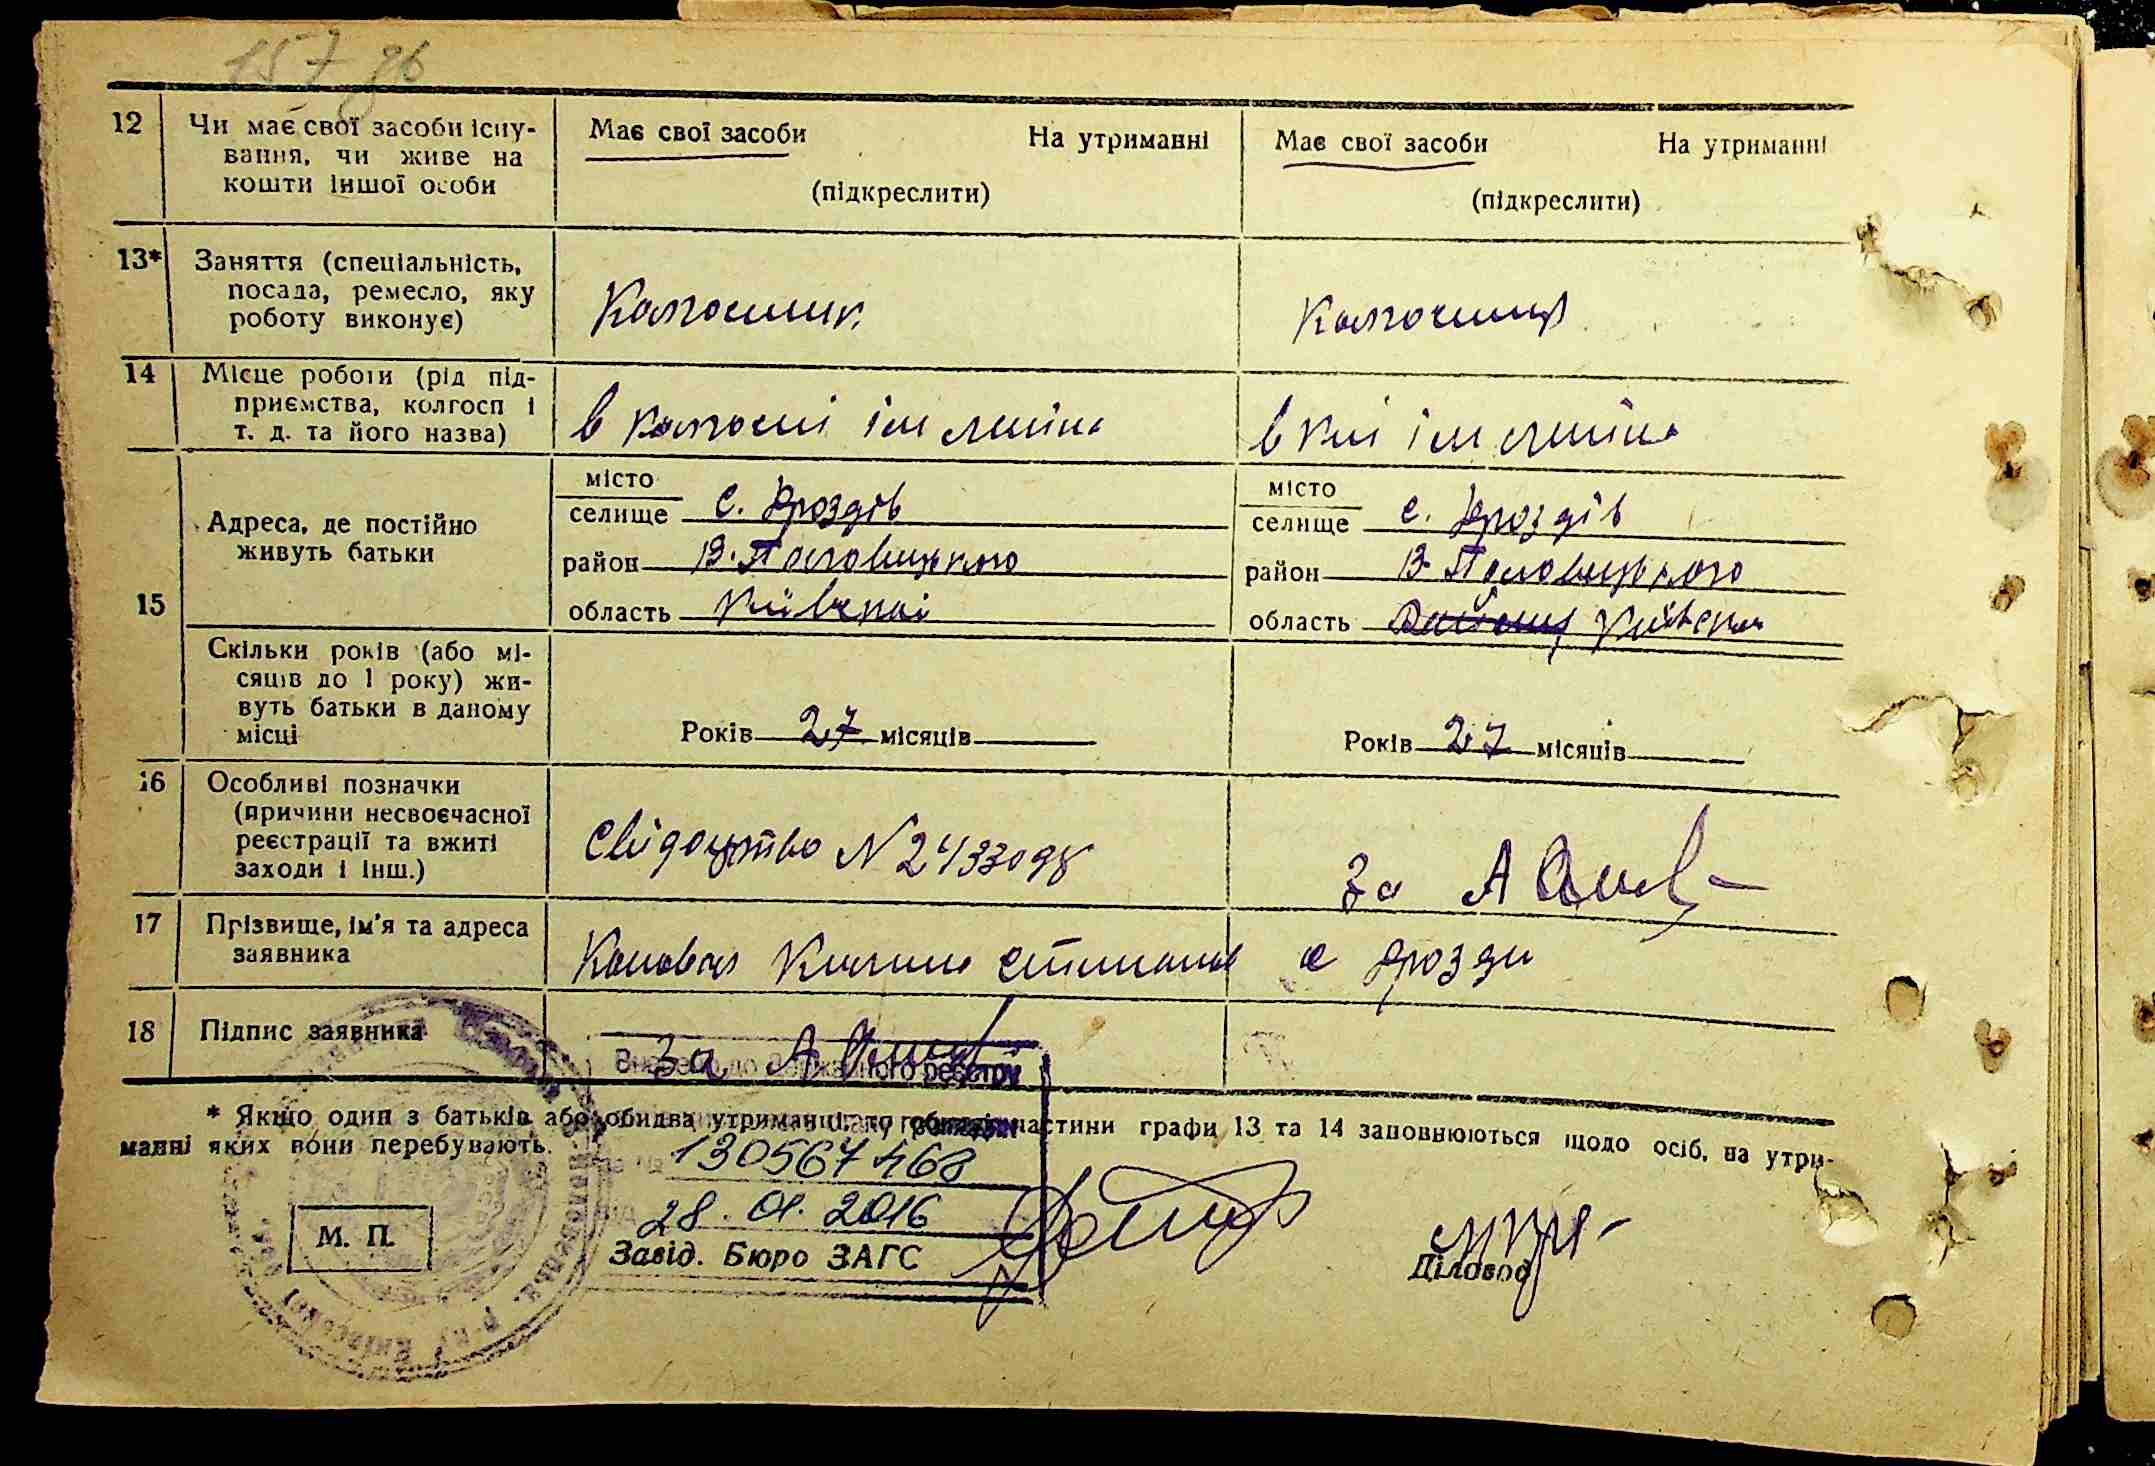 157 зв
12 Чи має свої засоби існу-
вання, чи живе на
кошти іншої особи
Має свої засоби На утриманні
(підкреслити)
Має свої засоби На утриманні
(підкреслити)
13* Заняття (спеціальність,
посада, ремесло, яку
роботу виконує)
Колгосник
Колгосниця
14 Місце роботи (рід під-
приємства, колгосп і
т. д. та його назва)
в колгоспі ім леніна
в к-пі ім леніна
15
Адреса, де постійно
живуть батьки
місто
селище с. Дроздів
район В. Половицького
область Київскої
місто
селище с. Дроздів
район В. Половицького
область Київскої
Скільки років (або мі-
сяців до 1 року) жи-
вуть батьки в даному
місці
Років 27 місяців
Років 27 місяців
16 Особливі позначки
(причини несвоєчасної
реєстрації та вжиті
заходи і інш.)
Свідоцтво N 2433098
За А
17 Прізвище, ім'я та адреса
заявника
Коновал с Дрозди
18 Підпис заявника
За А
реєстру
* Якщо один з батьків або обидва утриманці, то частини графи 13 та 14 заповнюються щодо осіб, на утри-
манні яких вони перебувають.
130567468
28.01.2016
М. П.
Завід. Бюро ЗАГС
Діловод